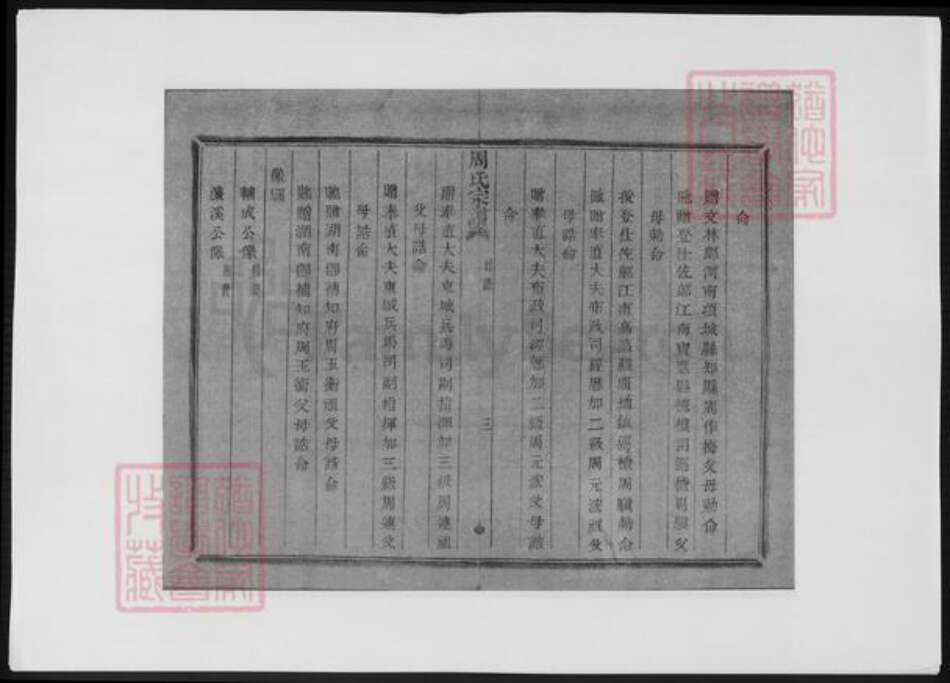 命
贈文林郎河南項城縣知縣周作梅父母勅命
貤贈登仕佐郎江南寶應縣 司巡檢周 父
母勅命
授登仕佐郎江南高 縣 鎮巡檢周 勅命
貤贈奉直大夫布政司經歷加二級周元 祖父
母誥命
贈奉直大夫布政司經歷加二級周元 父母誥
命
周氏宗譜
目錄
三
贈奉直大夫東城兵馬司副指揮加三級周連祖
父母誥命
贈奉直大夫東城兵馬司副指揮加三級周連父
母誥命
貤贈湖南卽補知府周玉衡祖父母誥命
貤贈湖南卽補知府周玉衡父母誥命
像圖
輔成公像
濂溪公像